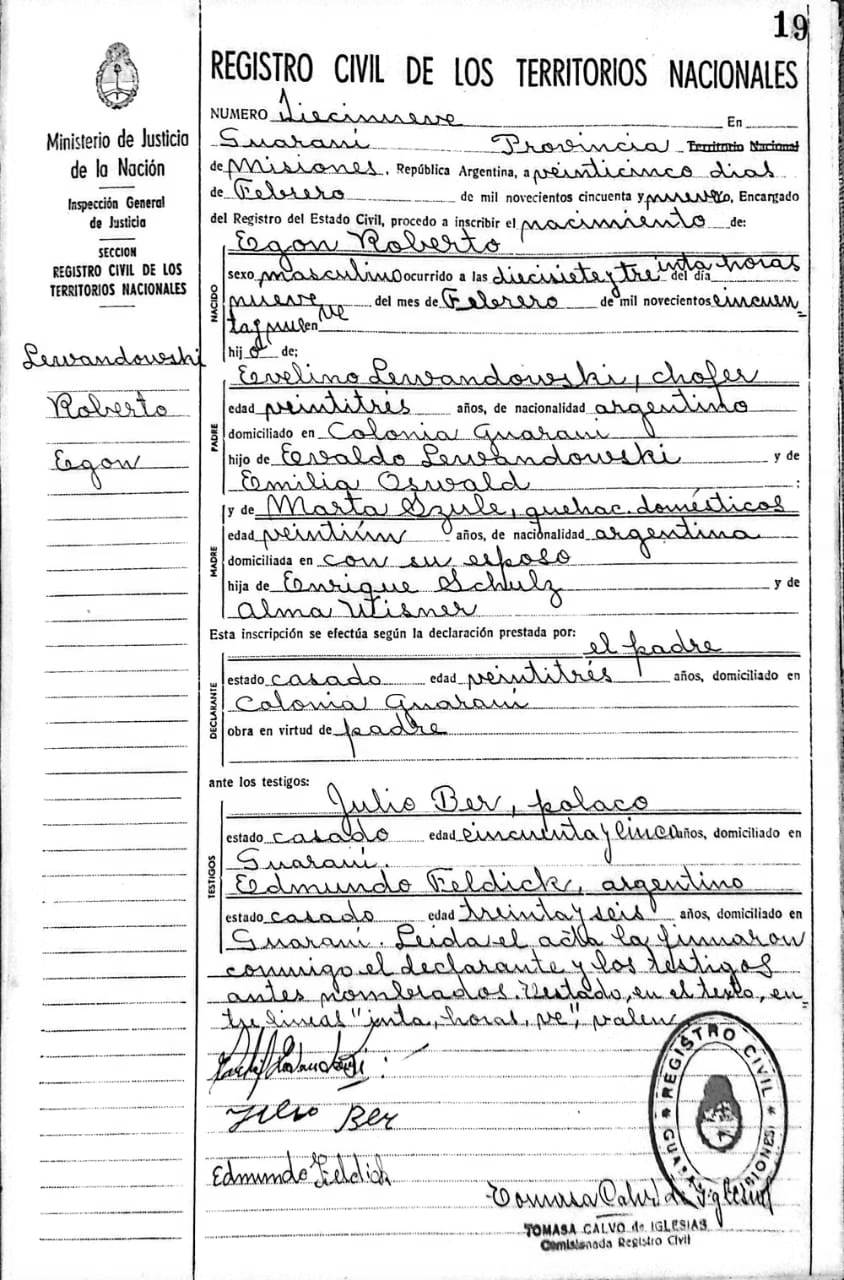 19
REGISTRO CIVIL DE LOS TERRITORIOS NACIONALES
Ministerio de Justicia
de la Nación
Inspección General
de Justicia
SECCION
REGISTRO CIVIL DE LOS
TERRITORIOS NACIONALES
Lewandowski
Roberto
Egon
NUMERO Diecinueve En
Guaraní Provincia Territorio Nacional
de Misiones, República Argentina, a veinticinco dias
de Febrero de mil novecientos cincuenta y nueve, Encargado
del Registro del Estado Civil, procedo a inscribir el nacimiento de:
Egon Roberto
NACIDO
sexo masculino ocurrido a las diecisiete y treinta horas del día
nueve del mes de Febrero de mil novecientos cincuen-
ta y nueve
hijo de;
PADRE
Evelino Lewandowski, chofer
edad veintitrés años, de nacionalidad argentino
domiciliado en Colonia Guaraní
hijo de Evaldo Lewandowski y de
Emilia Oswald :
MADRE
y de Marta Szule, quehac. domésticos
edad veintiún años, de nacionalidad argentina
domiciliada en con su esposo
hija de Enrique Schulz y de
Alma Wisner
Esta inscripción se efectúa según la declaración prestada por:
el padre
DECLARANTE
estado casado edad veintitrés años, domiciliado en
Colonia Guaraní
obra en virtud de padre
ante los testigos:
TESTIGOS
Julio Ber, polaco
estado casado edad cincuenta y cinco años, domiciliado en
Guaraní.
Edmundo Feldick, argentino
estado casado edad treinta y seis años, domiciliado en
Guaraní. Leida el acta la firmaron
conmigo el declarante y los testigos
antes nombrados. Testado, en el texto, en-
tre lineas "inta, horas, ve", valen
Julio Ber
Edmundo Feldich
REGISTRO CIVIL
GUARANI (MISIONES)
Tomasa Calvo de Iglesias
TOMASA CALVO de IGLESIAS
Comisionada Registro Civil